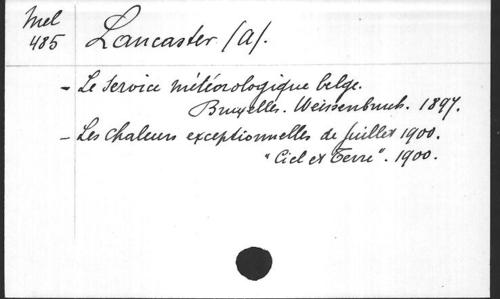 Mel
485
Lancaster (A).
- Le Service météorologique belge.
Bruxelles. Weissenbruch. 1897.
- Les Chaleurs exceptionnelles de Juillet 1900.
"Ciel et Terre". 1900.